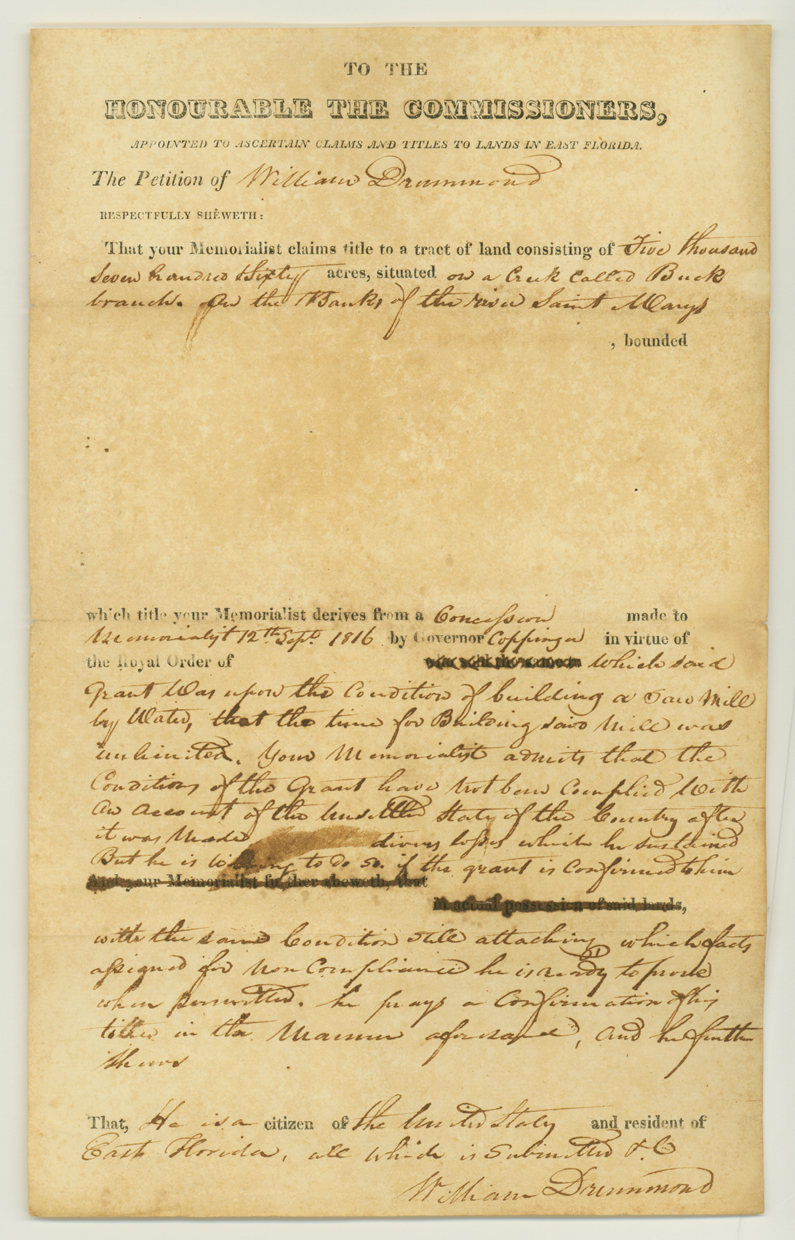 TO THE
HONOURABLE THE COMMISSIONERS,
APPOINTED TO ASCERTAIN CLAIMS AND TITLES TO LANDS IN EAST FLORIDA.
The Petition of William Drummond
RESPECTFULLY SHEWETH:
That your Memorialist claims title to a tract of land consisting of Five thousand
Seven hundred & Sixty acres, situated on a Creek Called Buck
branch. On the Banks of the river Saint Marys
, bounded
which title your Memorialist derives from a Concession made to
Memorialist 12th Sept. 1816 by Governor Coppinger in virtue of
the Royal Order of which said
grant Was upon the Condition of building a Saw Mill
by Water, that the time for Building said Mill was
unlimited. Your Memorialist admits that the
Conditions of the Grant have not been Complied With
on Account of the Unsettled State of the Country after
it was Made divers losses which he sustained
But he is willing to do so if the grant is Confirmed to him
And your Memorialist further sheweth, that
in actual possession of said lands,
with the same Condition still attaching which facts
assigned for Non Compliance he is ready to prove
when permitted. he prays a Confirmation of his
title in the Manner aforesaid, and he further
shews
That, He is a citizen of the United States and resident of
East Florida, all which is Submitted &C
William Drummond